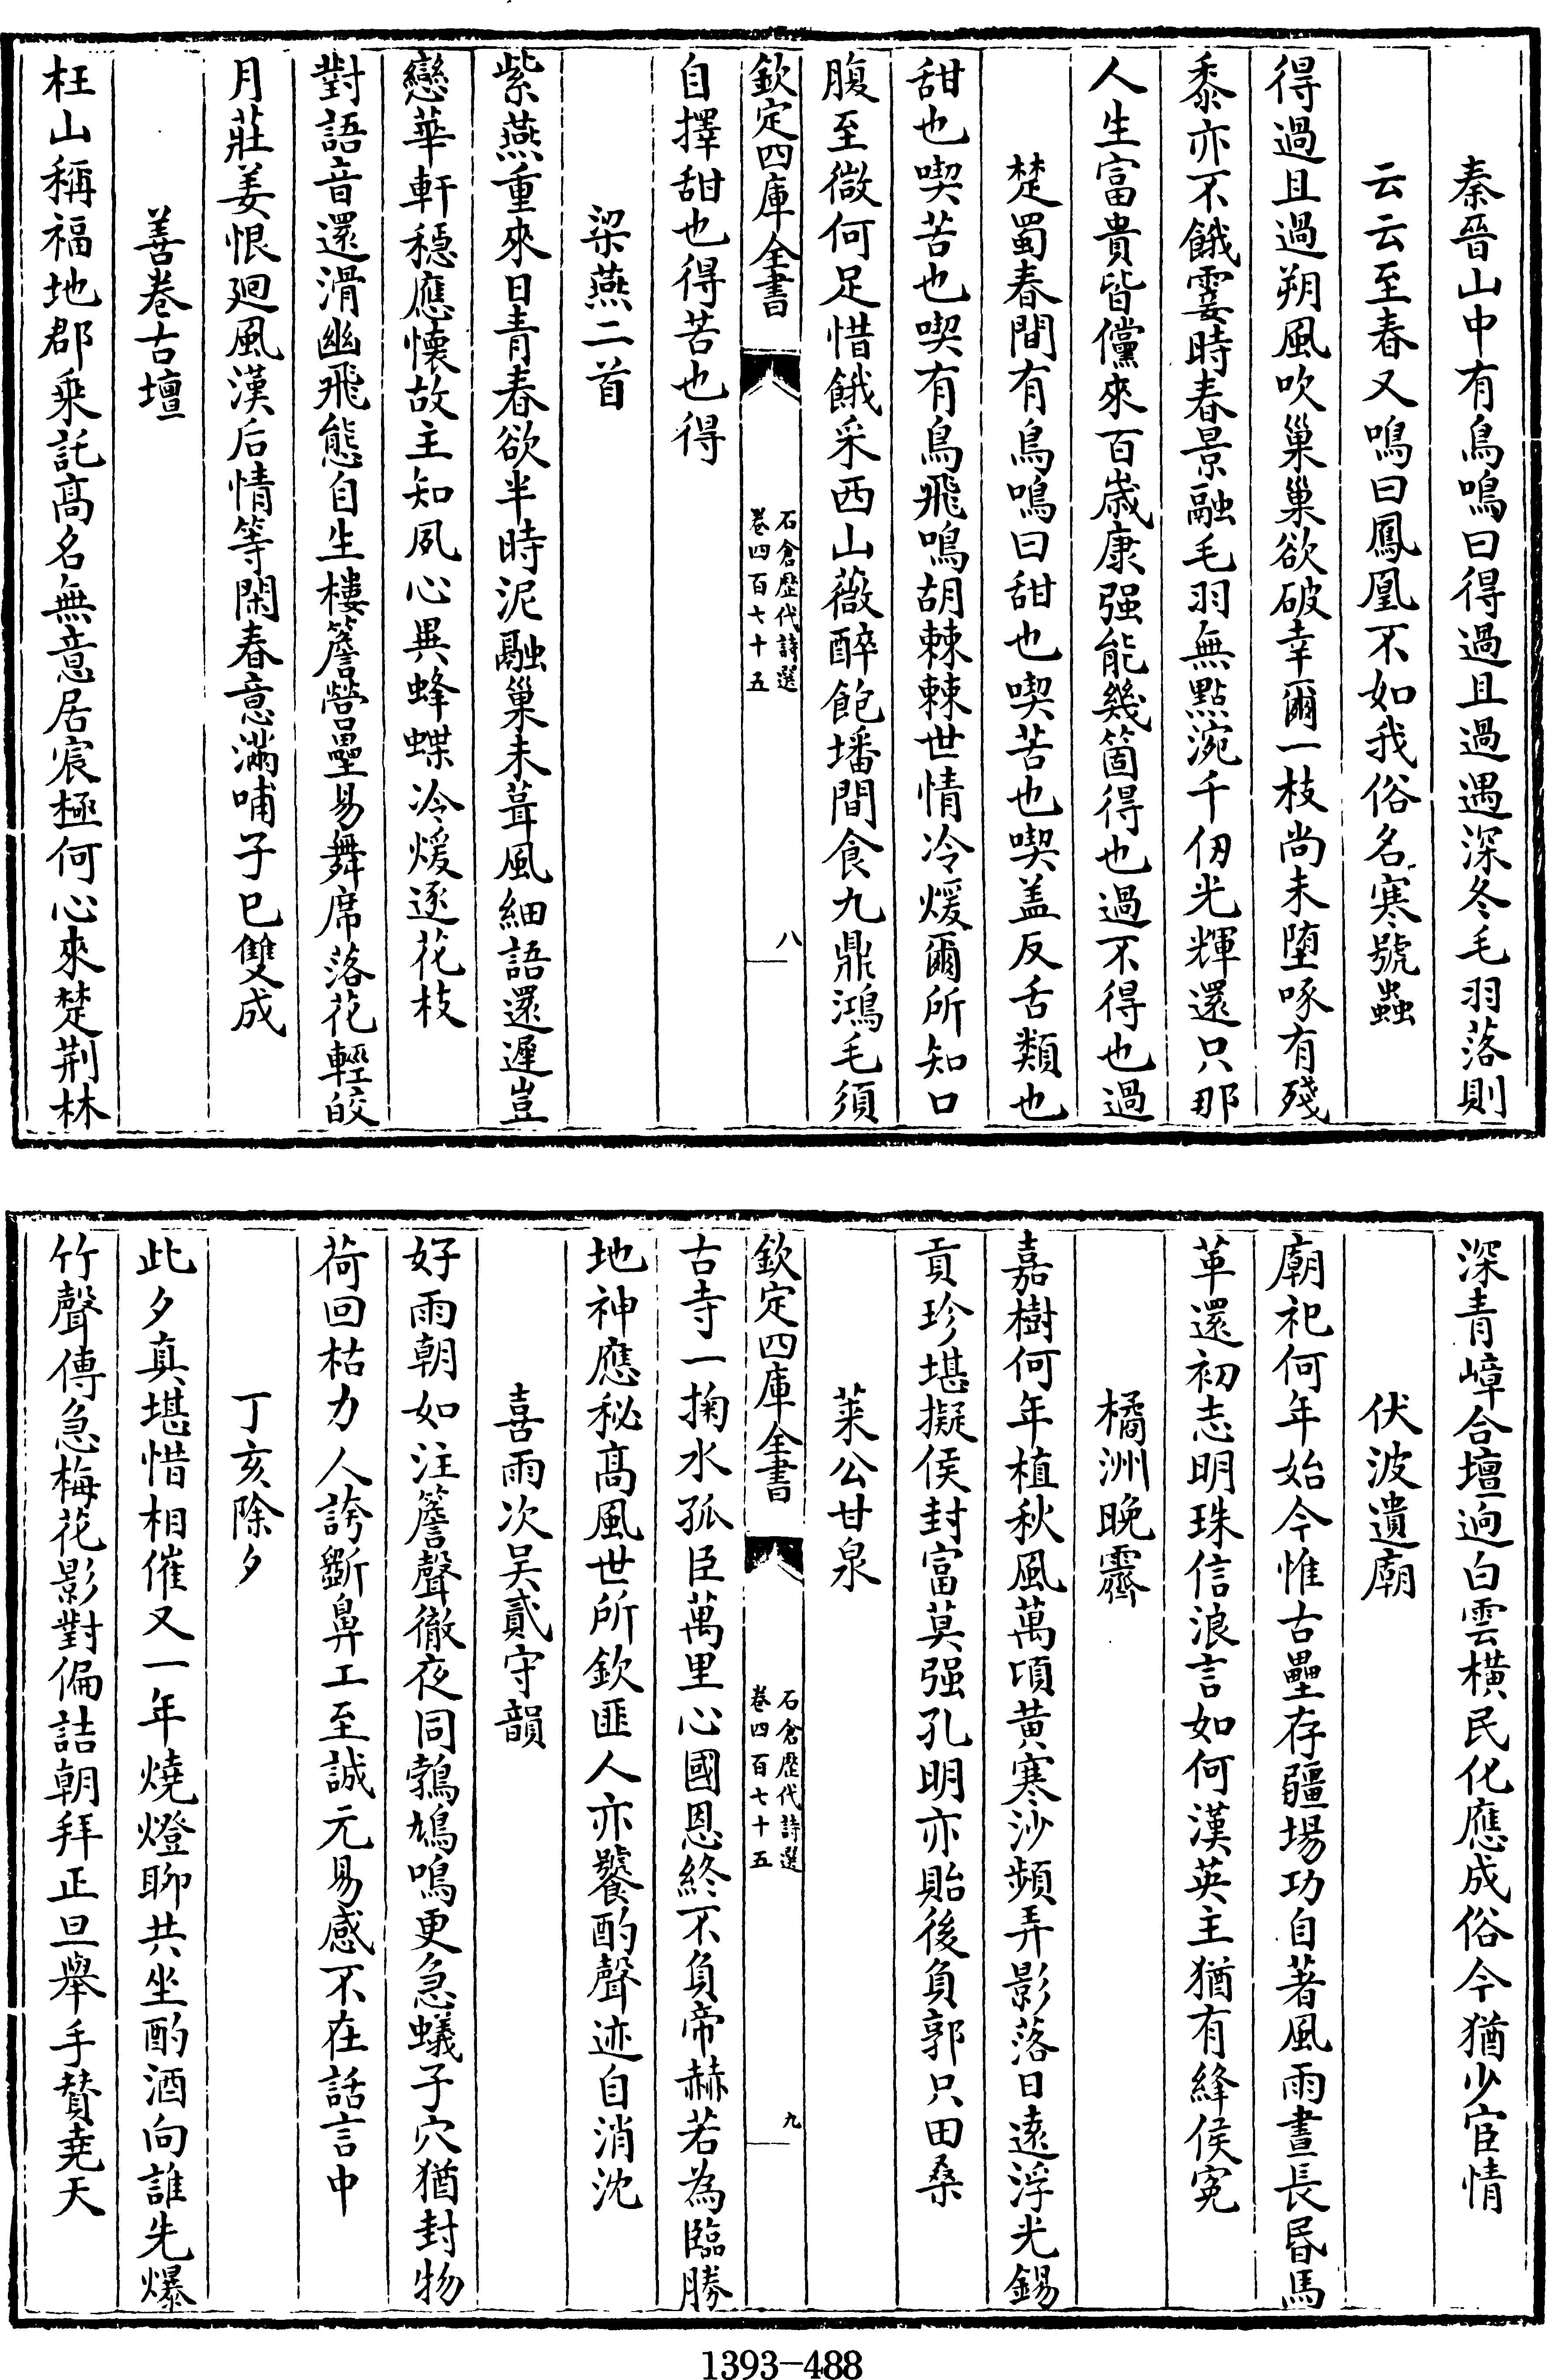 秦晉山中有鳥鳴曰得過且過遇深冬毛羽落則
云云至春又鳴曰鳳凰不如我俗名寒號蟲
得過且過朔風吹巢巢欲破幸爾一枝尚未堕啄有殘
黍亦不餓霎時春景融毛羽無點涴千仞光輝還只那
人生富貴皆儻來百歲康强能幾箇得也過不得也過
楚蜀春間有鳥鳴曰甜也喫苦也喫盖反舌類也
甜也喫苦也喫有鳥飛鳴胡棘棘世情冷煖爾所知口
腹至微何足惜餓采西山薇醉飽墦間食九鼎鴻毛須
欽定四庫全書
石倉歷代詩選
卷四百七十五
八
自擇甜也得苦也得
梁燕二首
紫燕重來日青春欲半時泥融巢未葺風細語還遲豈
戀華軒穩應懷故主知夙心異蜂蝶冷煖逐花枝
對語音還滑幽飛態自生樓簷營壘易舞席落花輕皎
月莊姜恨廻風漢后情等閑春意滿哺子已雙成
善卷古壇
枉山稱福地郡乘託髙名無意居宸極何心來楚荆林
深青嶂合壇逈白雲橫民化應成俗今猶少宦情
伏波遺廟
廟祀何年始今惟古壘存疆場功自著風雨晝長昬馬
革還初志明珠信浪言如何漢英主猶有絳侯寃
橘洲晩霽
嘉樹何年植秋風萬頃黄寒沙頻弄影落日遠浮光錫
貢珍堪擬侯封富莫强孔明亦貽後負郭只田桑
萊公甘泉
欽定四庫全書
石倉歷代詩選
卷四百七十五
九
古寺一掬水孤臣萬里心國恩終不負帝赫若為臨勝
地神應秘髙風世所欽匪人亦饕酌聲迹自消沈
喜雨次吴貳守韻
好雨朝如注簷聲徹夜同鶉鳩鳴更急蟻子穴猶封物
荷回枯力人誇斵鼻工至誠元易感不在話言中
丁亥除夕
此夕真堪惜相催又一年燒燈聊共坐酌酒向誰先爆
竹聲傳急梅花影對偏詰朝拜正旦舉手賛堯天
1393-488